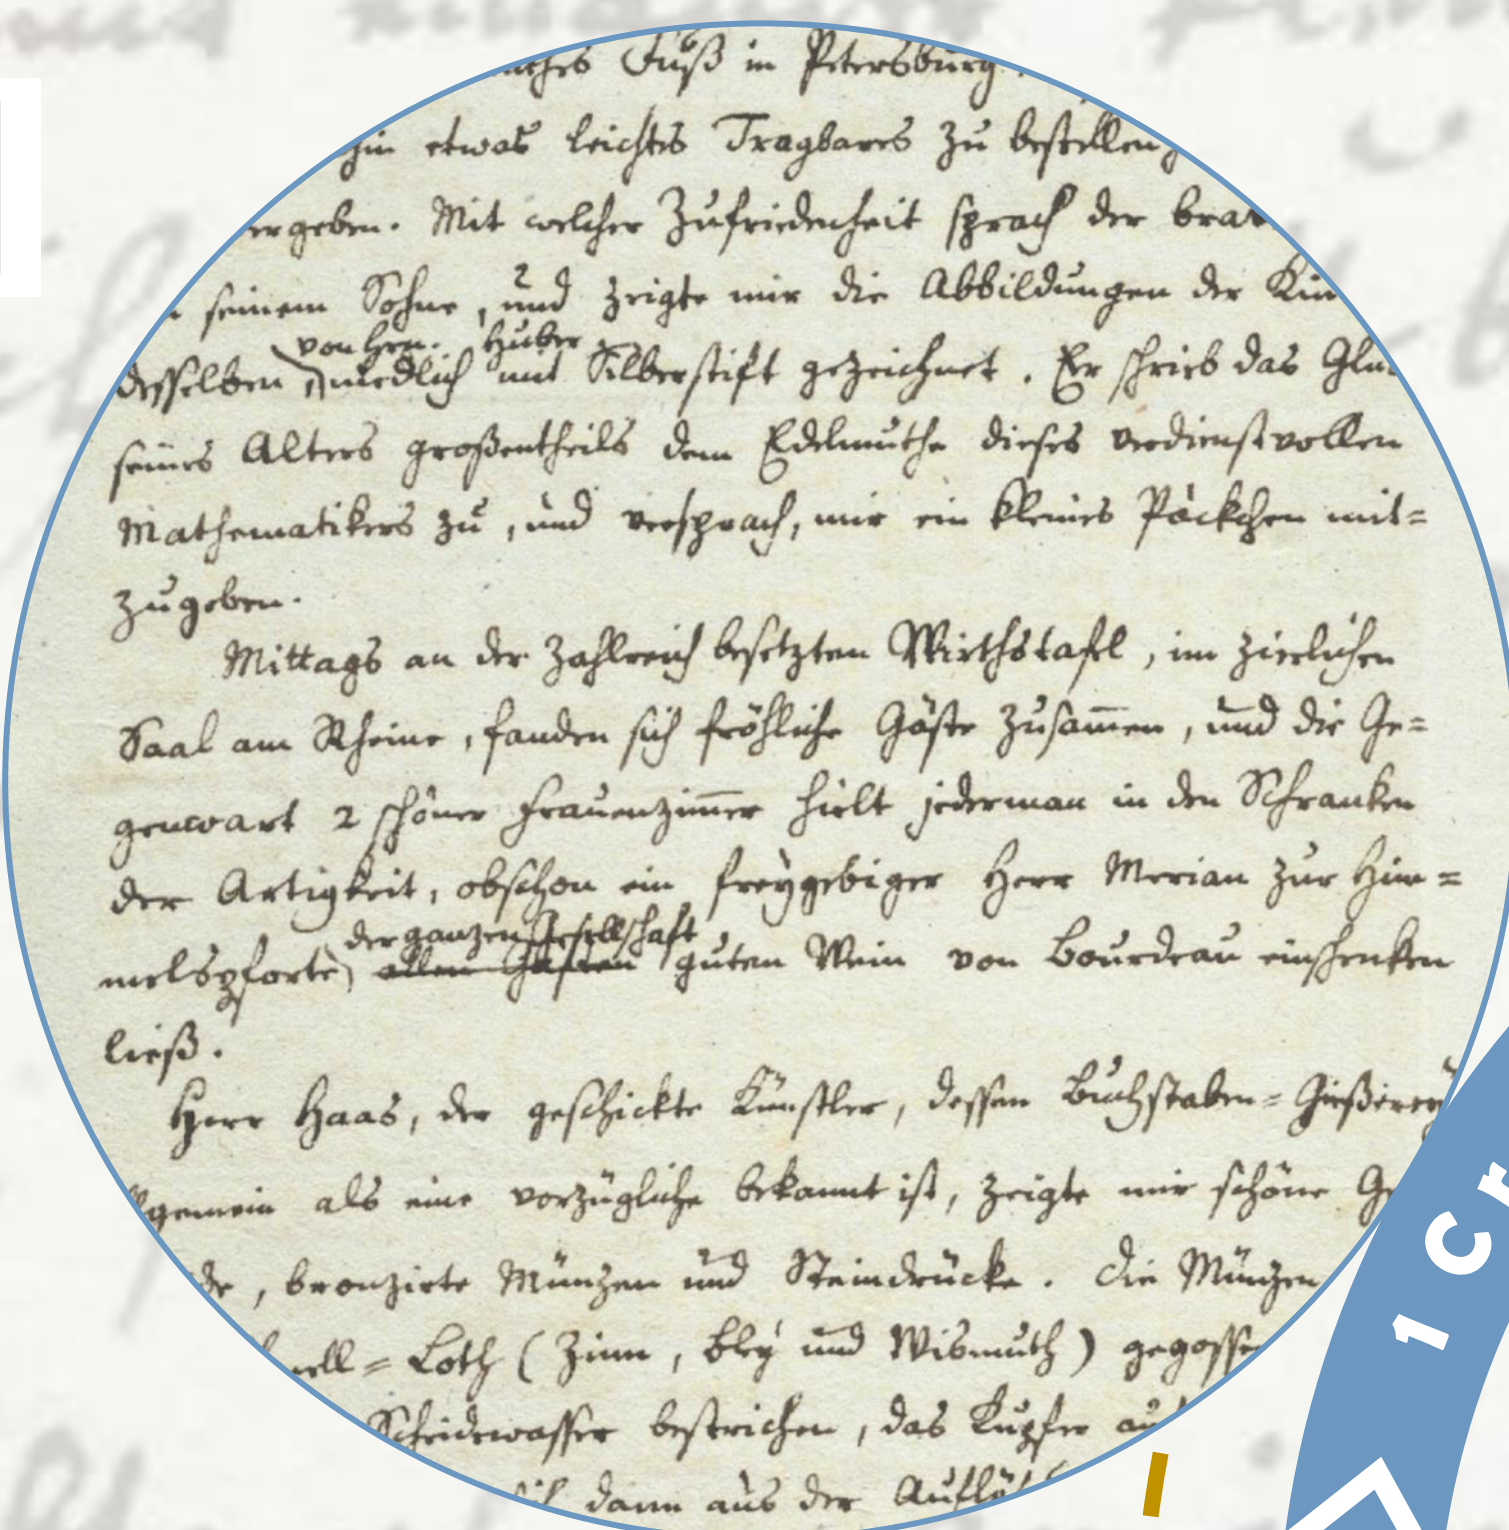 Fuß in Petersburg
etwas leichtes Tragbares zu bestellen,
ergeben. Mit welcher Zufriedenheit sprach der
seinem Sohne, und zeigte mir die Abbildungen der
von Hrn. Huber
desselben, niedlich mit Silberstift gezeichnet. Er schrieb das
seines Alters großentheils dem Edelmuthe dieses verdienstvollen
Mathematikers zu, und versprach, mir ein kleines Päckchen mit=
zugeben.
Mittags an der zahlreich besetzten Wirthstafel, im zierlichen
Saal am Rheine, fanden sich fröhliche Gäste zusam̄en, und die Ge=
genwart 2 schöner Frauenzim̄er hielt jederman in den Schranken
der Artigkeit, obschon ein freygebiger Herr Merian zur Him=
der ganzen Gesellschaft
melspforte) allen Gästen guten Wein von Bourdeau einschenken
ließ.
Herr Haas, der geschickte Künstler, dessen Buchstaben=Gießerey
allgemein als eine vorzügliche bekannt ist, zeigte mir schöne
, bronzirte Münzen und Steindrücke. Die Münzen
=Loth (Zinn, Bley und Wismuth) gegossen
Scheidewasser bestrichen, das Kupfer
sich dann aus der
1 cr